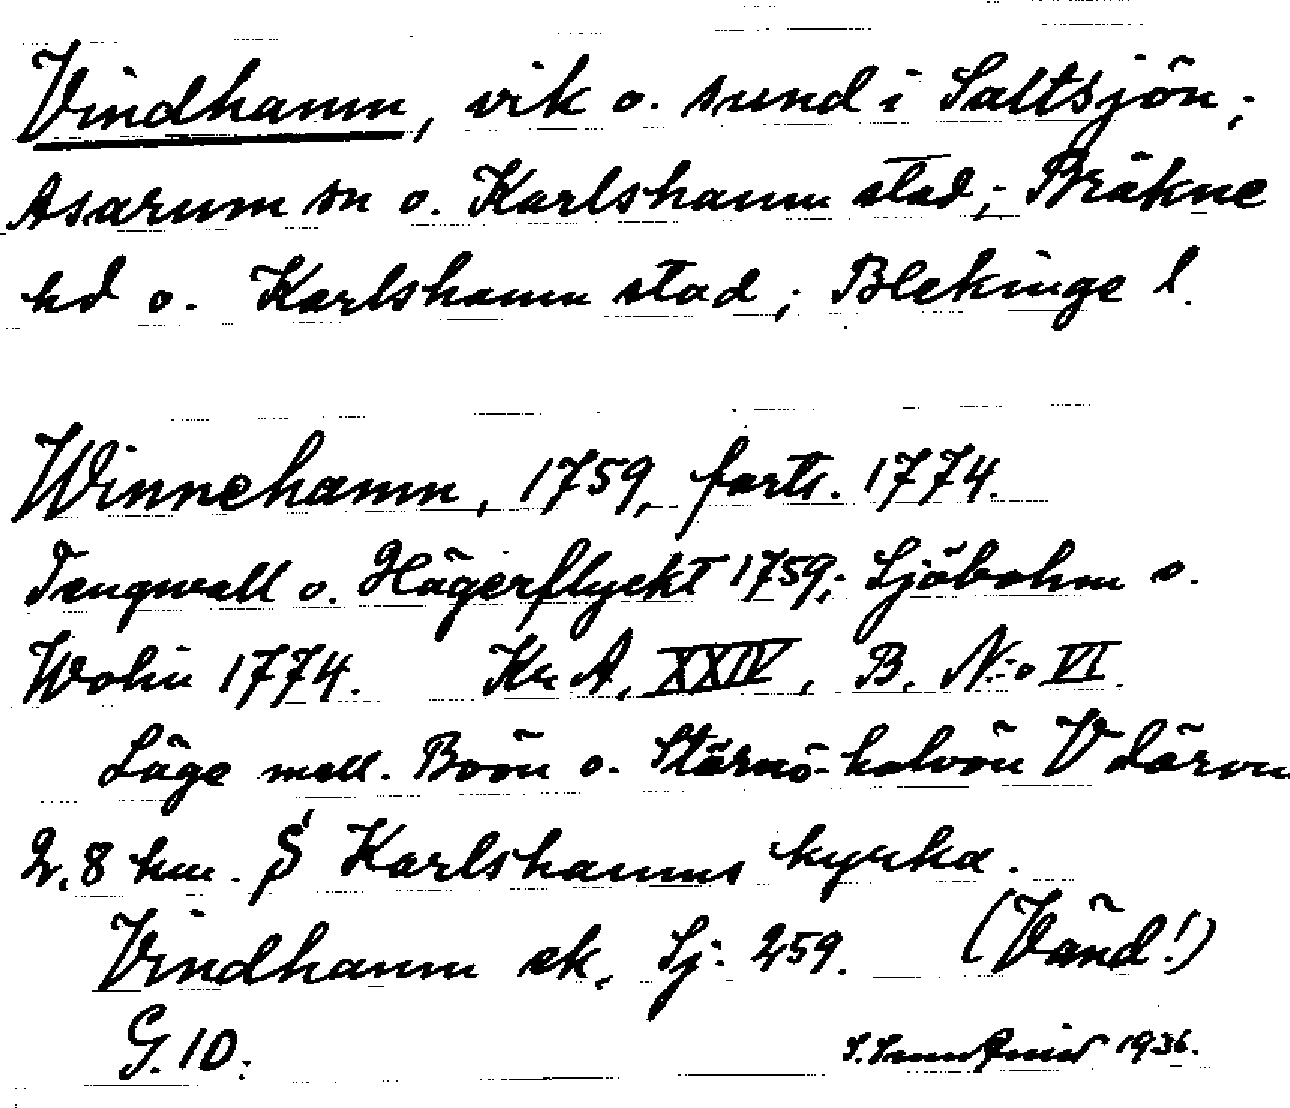 Vindhamn, vik o. sund i Saltsjön;
Asarum sn o. Karlshamn stad; Bräkne
hd o. Karlshamn stad; Blekinge l.
Winnehamn, 1759, forts. 1774.
Tengwall o. Hägerflyckt 1759; Sjöbohm o.
Wolin 1774. Kr. A, XXIV, B. N:o VI.
Läge mell. Boön o. Stärnö-halvön V därom
2,8 km. S Karlshamns kyrka.
Vindhamn ek. Sj: 259. (Vänd!)
G. 10:
1936.